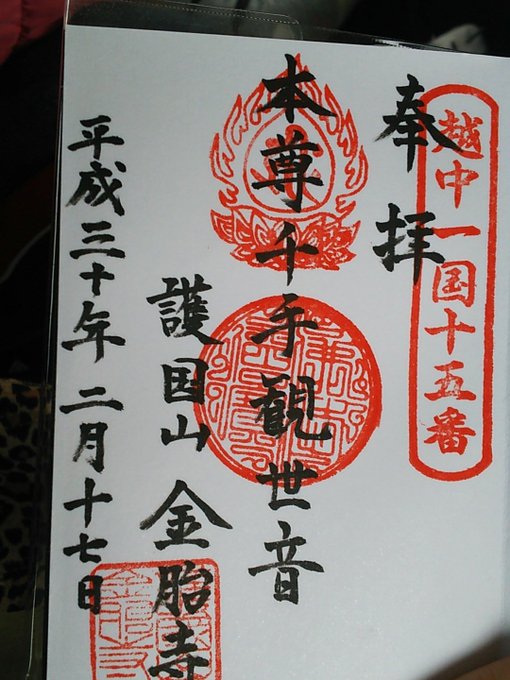 越中一国十五番
奉拝
本尊千手観世音
護国山 金胎寺
平成三十年 二月十七日